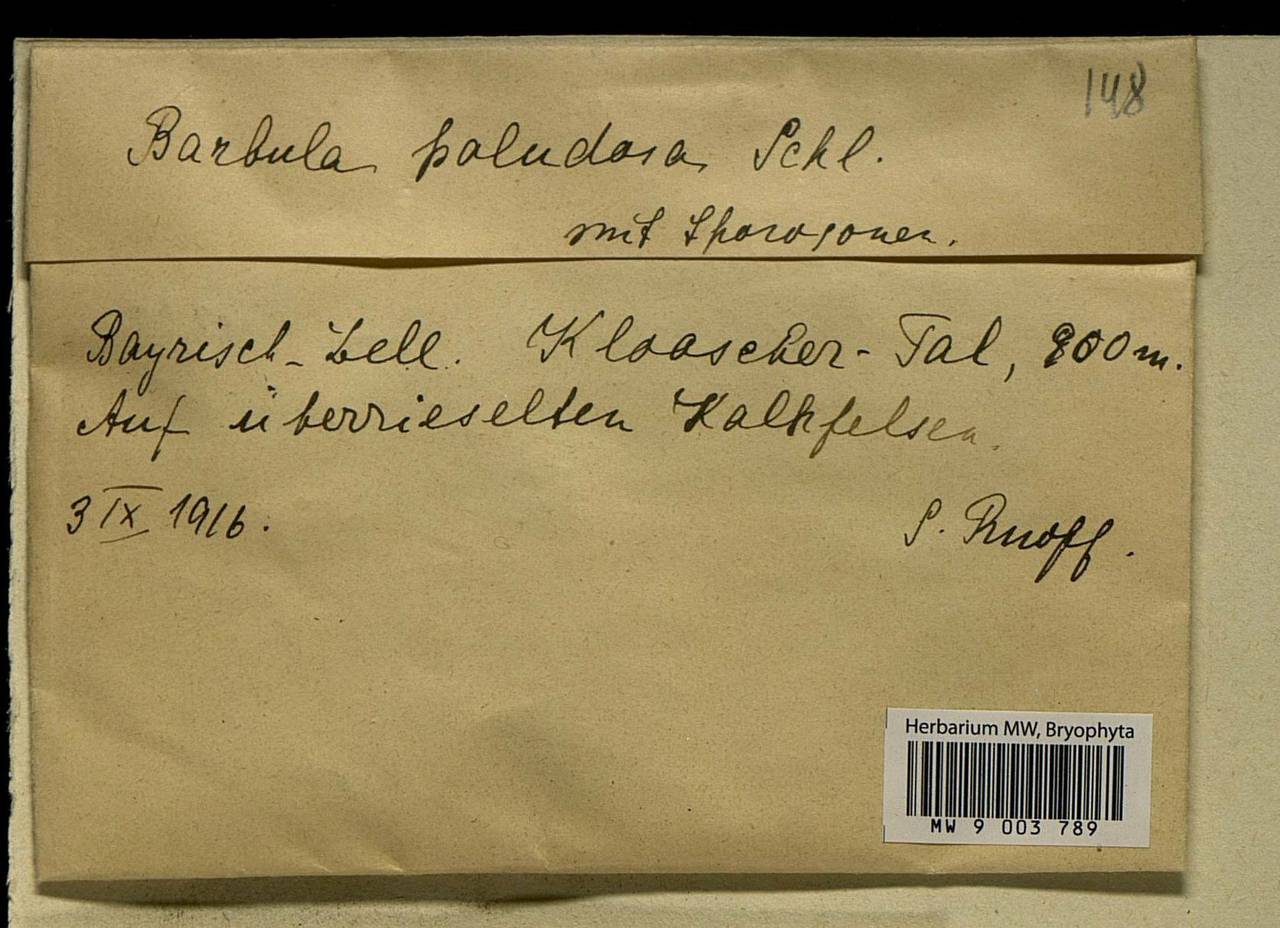 148
Barbula paludosa Schl.
mit Sporogonen.
Bayrisch-Zell. Kloascher-Tal, 800 m.
Auf überrieselten Kalkfelsen.
3 IX 1916.
S. Ruoff.
Herbarium MW, Bryophyta
MW 9 003 789